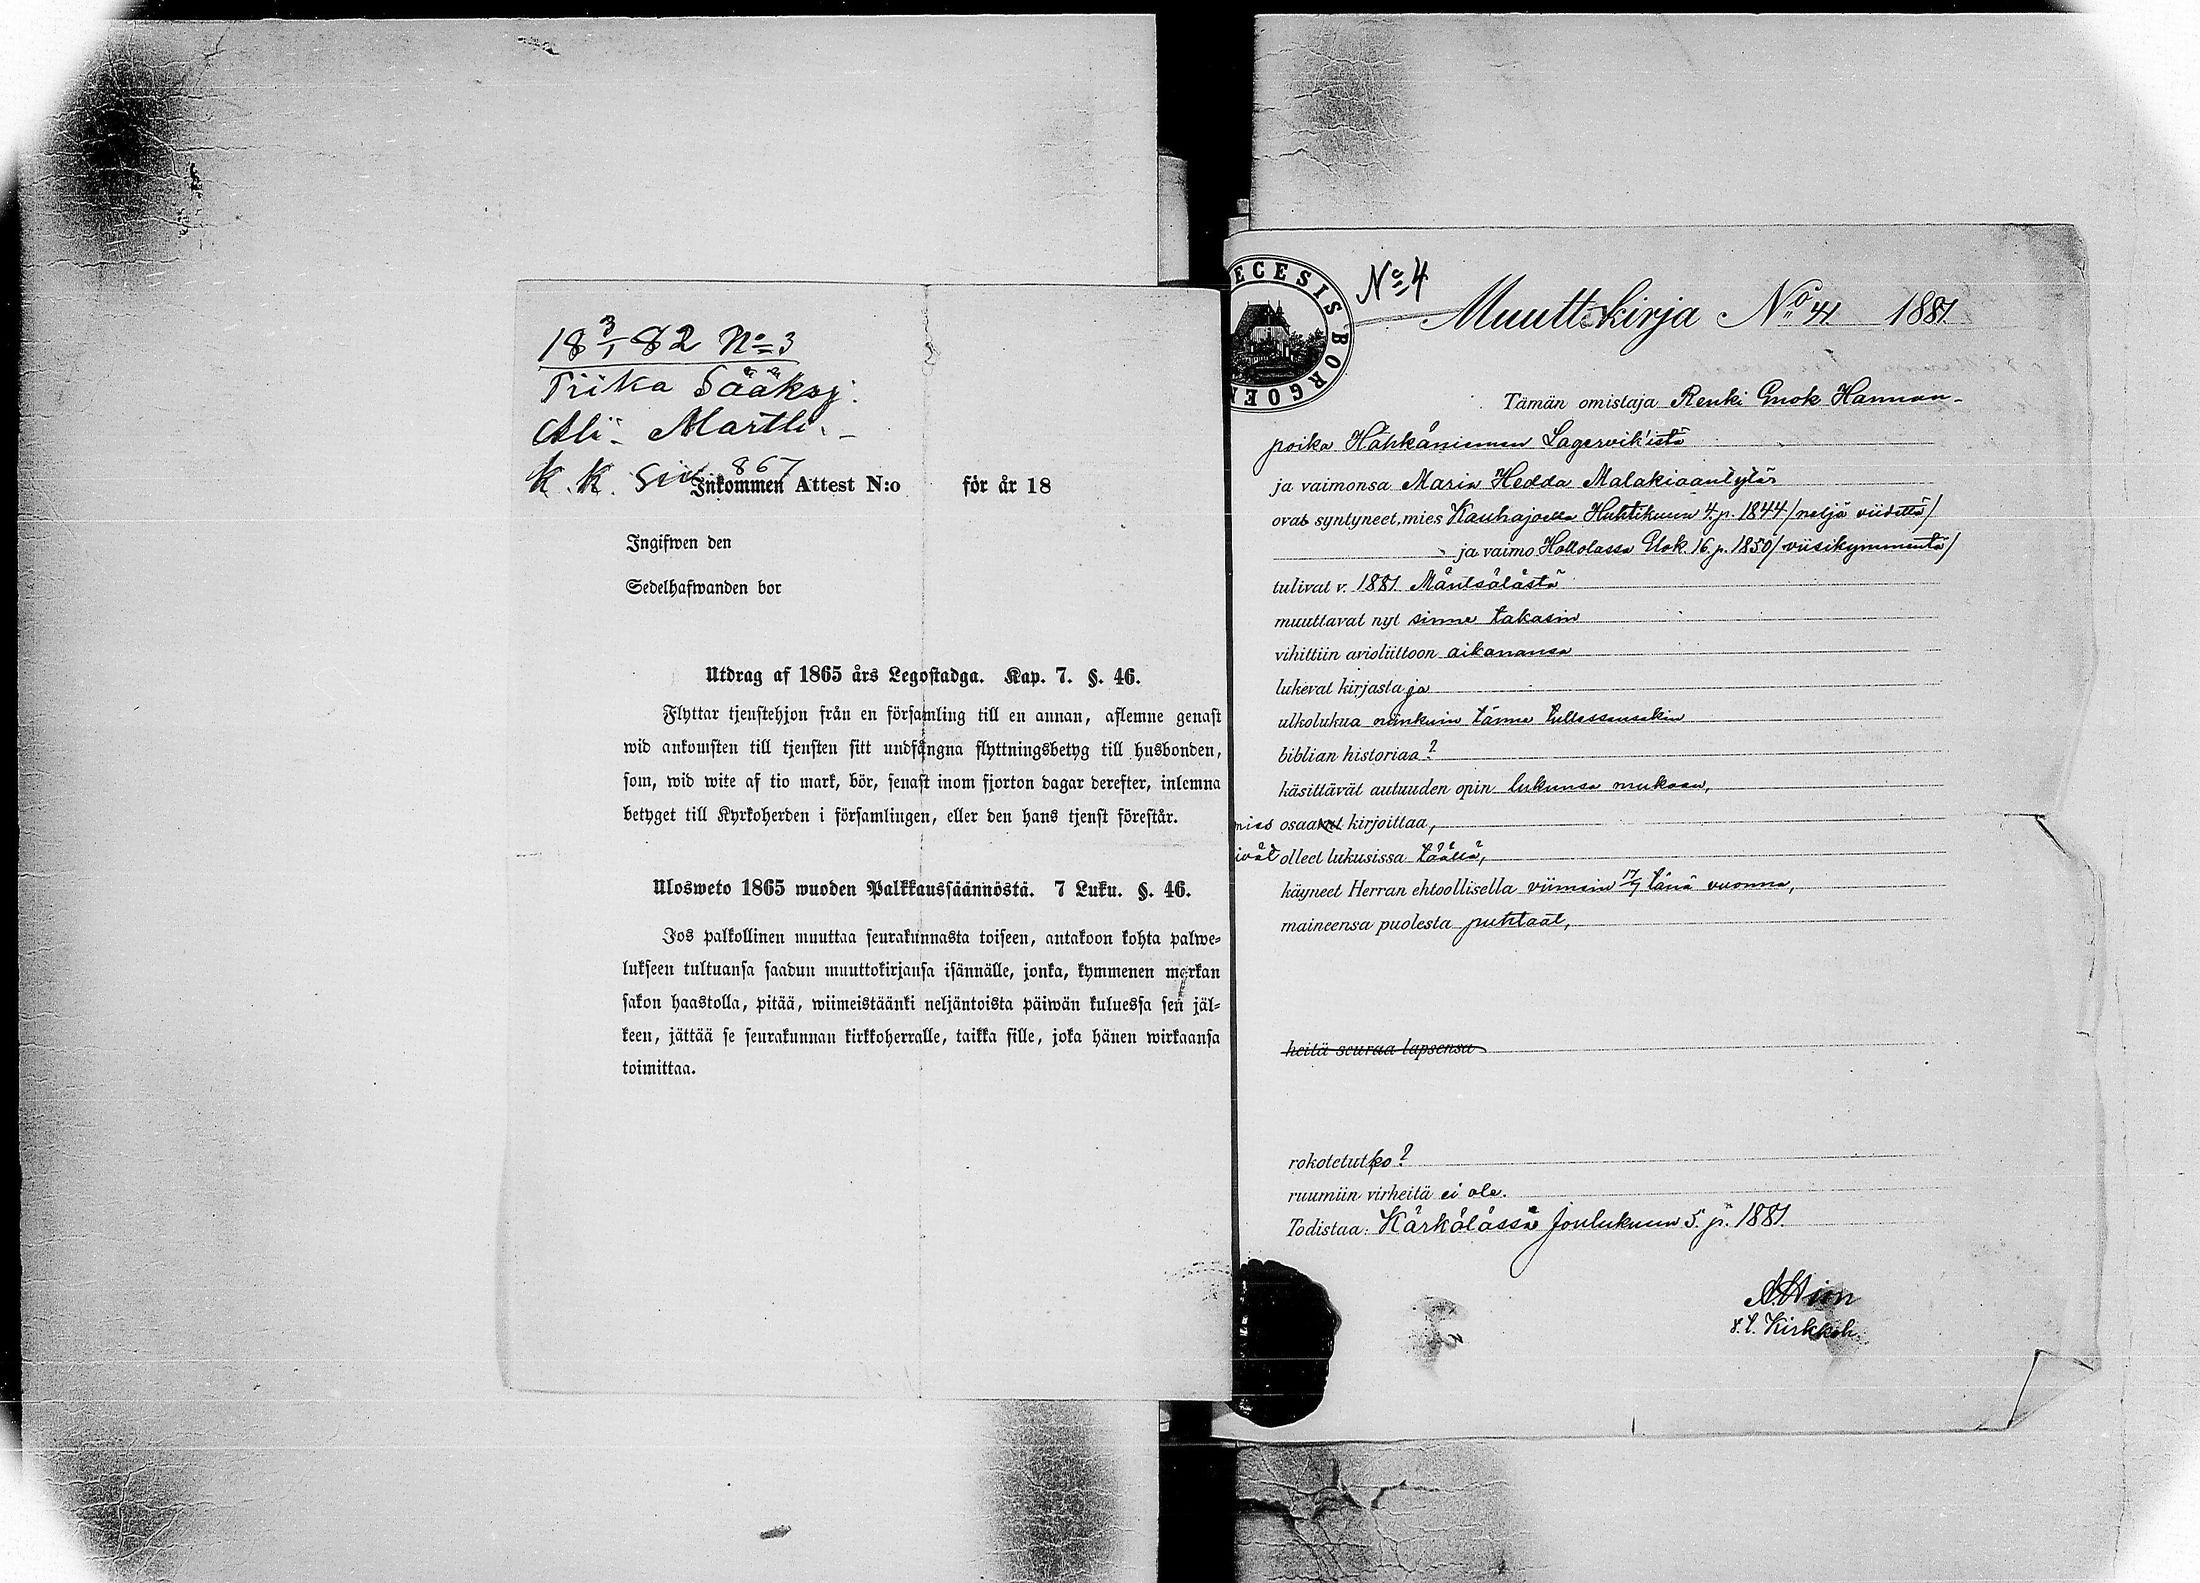 18 3/1 82 No 3
Tiika Sääksj:
Ali- Martti. -
K. K. Siv 867
Inkommen Attest N:o för år 18
Ingifwen den
Sedelhafwanden bor
Utdrag af 1865 års Legostadga. Kap. 7. §. 46.
Flyttar tjenstehjon från en församling till en annan, aflemne genast
wid ankomsten till tjensten sitt undfångna flyttningsbetyg till husbonden,
som, wid wite af tio mark, bör, senast inom fjorton dagar derefter, inlemna
betyget till Kyrkoherden i församlingen, eller den hans tjenst förestår.
Ulosweto 1865 wuoden Palkkaussäännöstä. 7 Luku. §. 46.
Jos palkollinen muuttaa seurakunnasta toiseen, antakoon kohta palwe-
lukseen tultuansa saadun muuttokirjansa isännälle, jonka, kymmenen markan
sakon haastolla, pitää, wiimeistäänki neljäntoista päiwän kuluessa sen jäl-
keen, jättää se seurakunnan kirkkoherralle, taikka sille, joka hänen wirkaansa
toimittaa.
ECESIS BORGOEN
No 4
Muuttokirja No 41. 1881
Tämän omistaja Renki Enok Hannun-
poika Hähkäniemen Lagervik'istä
ja vaimonsa Maria Hedda Malakiaantytär
ovat syntyneet, mies Kauhajoella Huhtikuun 4. p. 1844 /neljä viidettä/
ja vaimo Hollolassa Elok. 16. p. 1850 /viisikymmentä/
tulivat v. 1881. Mäntsälästä
muuttavat nyt sinne takasin
vihittiin avioliittoon aikanansa
lukevat kirjasta ja
ulkolukua niinkuin tänne tullessansakin
biblian historiaa?
käsittävät autuuden opin lukunsa mukaan,
mies osaavat kirjoittaa,
ivät olleet lukusissa täällä,
käyneet Herran ehtoollisella viimein 17/7 tänä vuonna,
maineensa puolesta puhtaat,
heitä seuraa lapsensa
rokotetutko?
ruumiin virheitä ei ole.
Todistaa: Kärkölässä Joulukuun 5. p. 1881.
Kirkkoh.